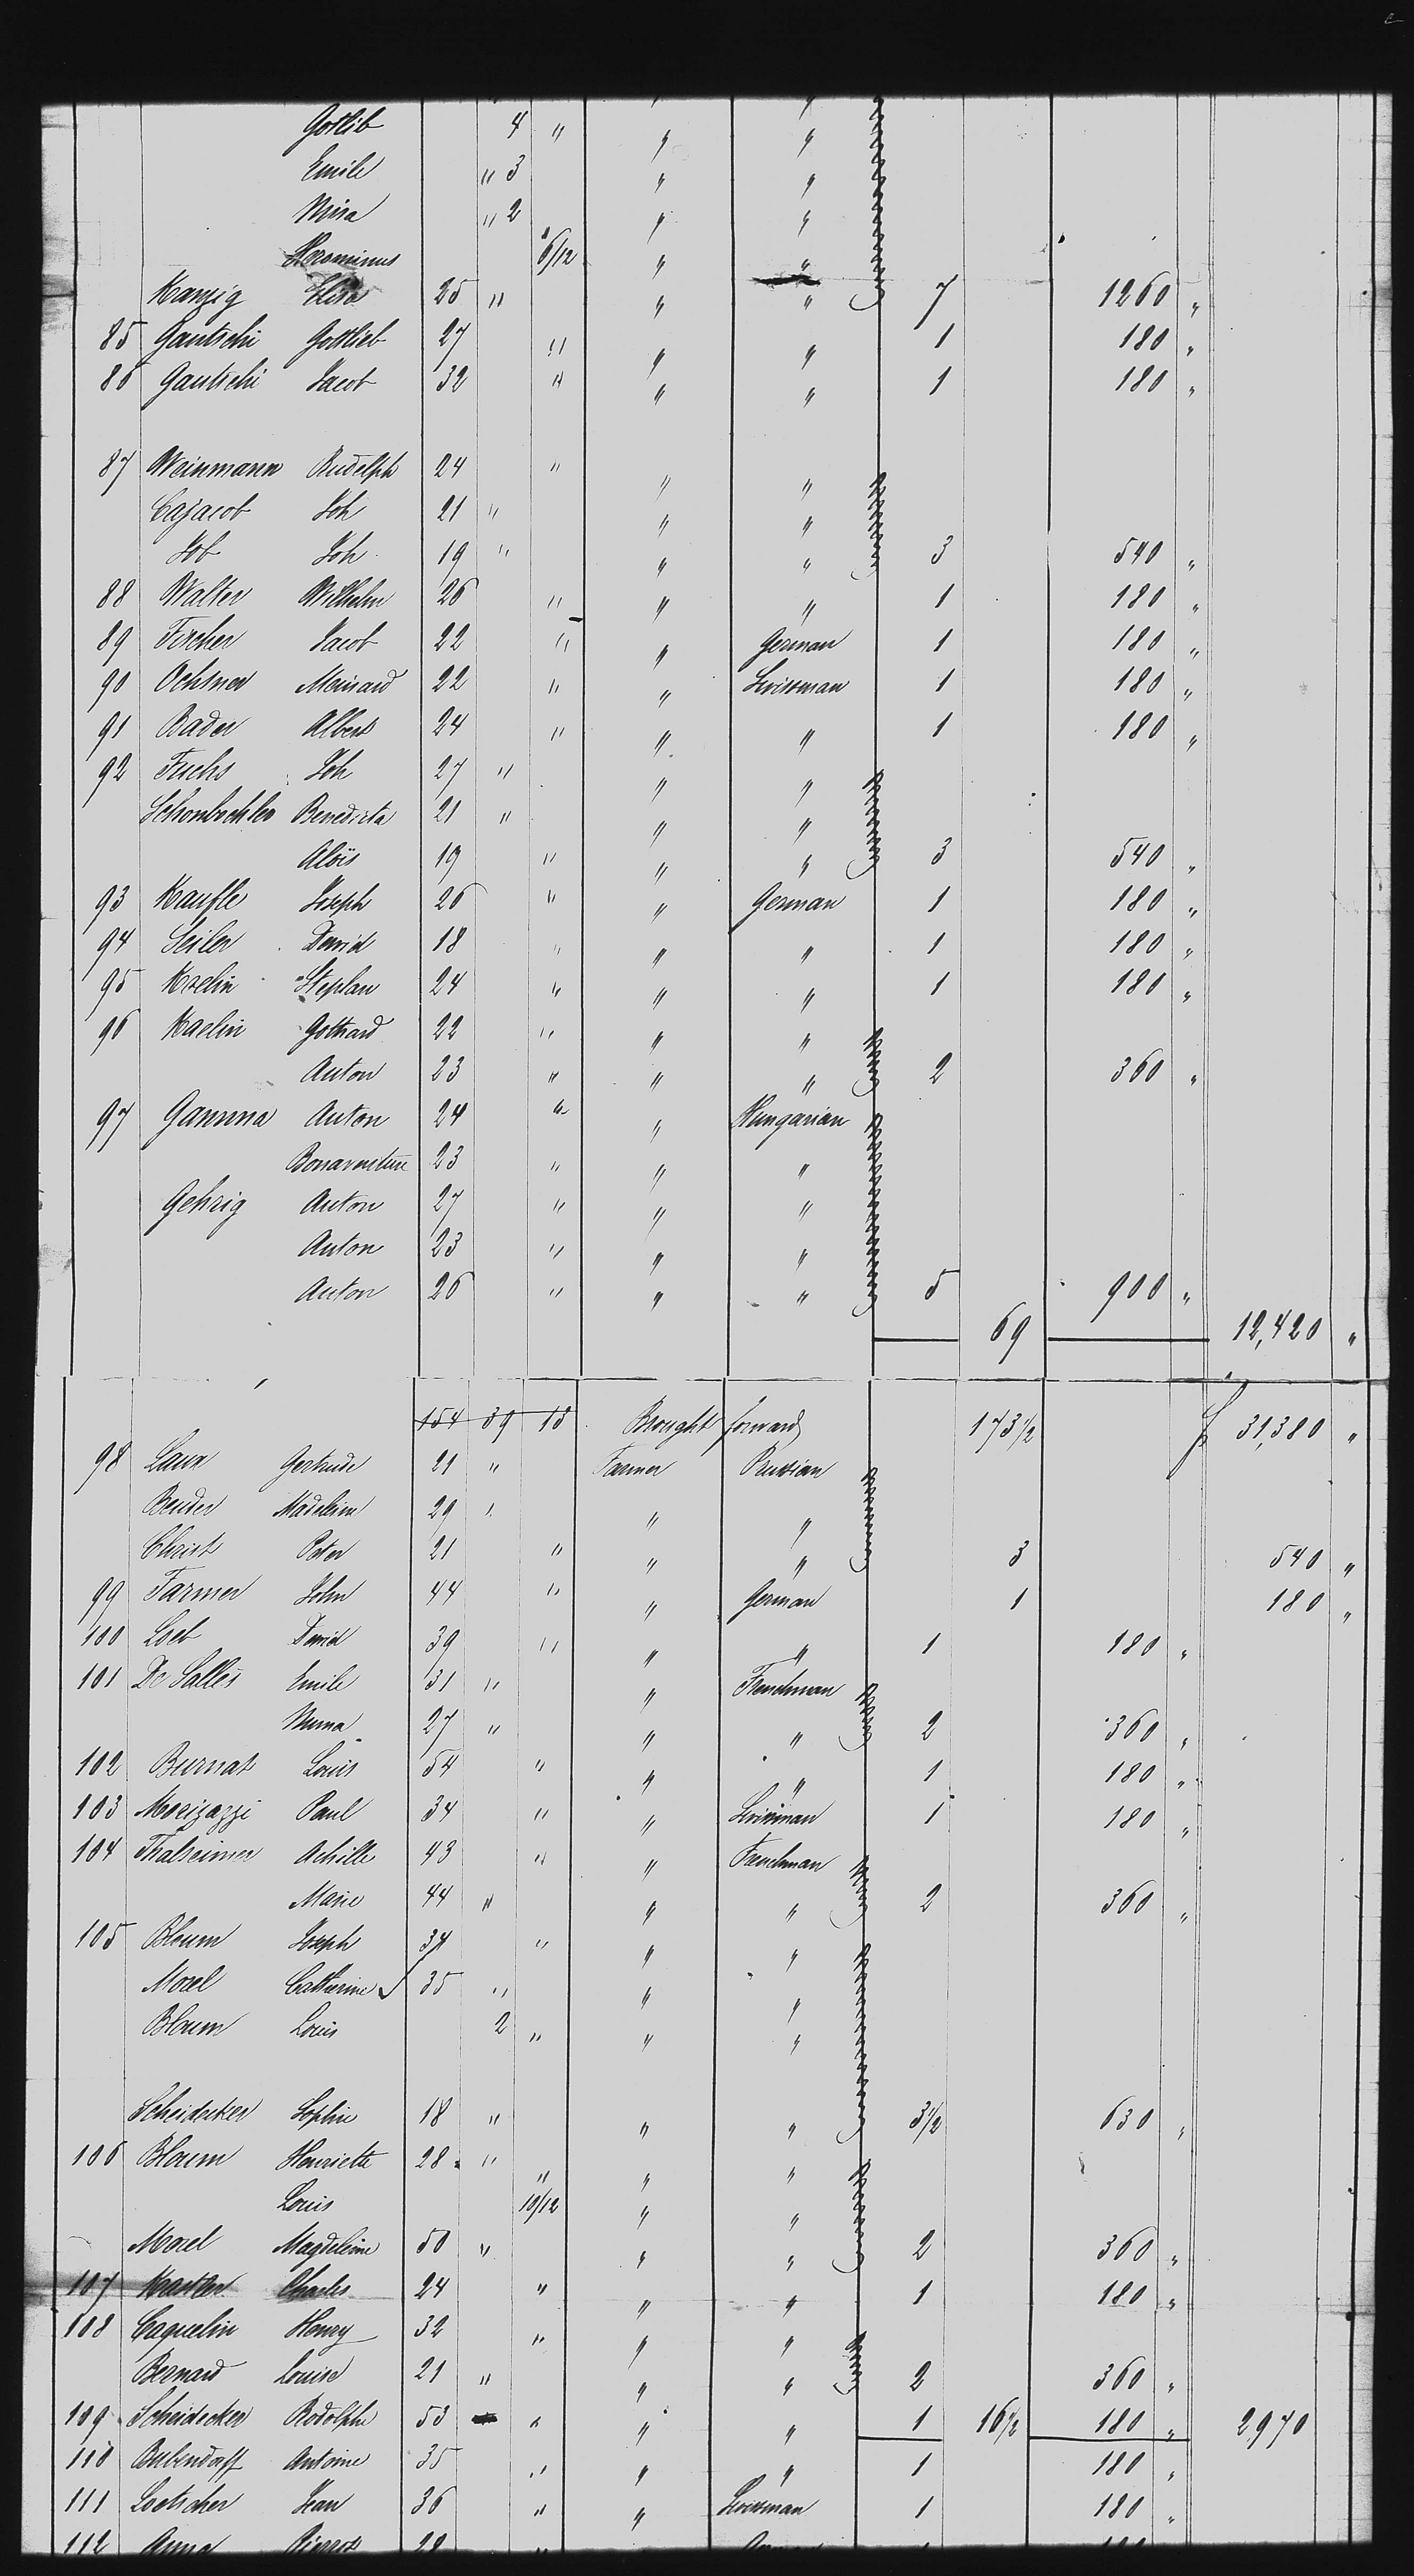 Gottlib 4 " " "
Emile " 3 " "
Mina " 2 " "
Herominus 6/12 " "
Kanzig Elise 25 " " " 7 1260 "
85 Gautschi Gottlieb 27 " " " 1 180 "
86 Gautschi Jacob 32 " " " 1 180 "
87 Weinmann Rudolph 24 " " "
Cajacob Joh 21 " " "
Job Joh 19 " " " 3 540 "
88 Walter Wilhelm 26 " " " 1 180 "
89 Fischer Jacob 22 " " German 1 180 "
90 Ochsner Meinard 22 " " Swissman 1 180 "
91 Bader Albert 24 " " " 1 180 "
92 Fuchs Joh 27 " " "
Schonbechler Benedicta 21 " " "
Aloïs 19 " " " 3 540 "
93 Kaufle Joseph 26 " " German 1 180 "
94 Seiler David 18 " " " 1 180 "
95 Kaelin Stephan 24 " " " 1 180 "
96 Kaelin Gothard 22 " " "
Anton 23 " " " 2 360 "
97 Gamma Anton 24 " " Hungarian
Bonaventure 23 " " "
Gehrig Anton 27 " " "
Anton 23 " " "
Anton 26 " " " 5 900 "
69 12,420 "
154 39 18 Brought forward 173 1/2 $ 31,380 "
98 Laux Gertrude 21 " Farmer Prussian
Bender Madeleine 29 " " "
Christ Peter 21 " " " 3 540 "
99 Farmer John 44 " " German 1 180 "
100 Loeb David 39 " " " 1 180 "
101 De Salles Emile 31 " " Frenchman
Numa 27 " " " 2 360 "
102 Burnat Louis 54 " " " 1 180 "
103 Mocizazzi Paul 34 " " Swissman 1 180 "
104 Thalseimer Achille 43 " " Frenchman
Marie 44 " " " 2 360 "
105 Bloum Joseph 34 " " "
Morel Catherine 35 " " "
Bloum Louis 2 " " "
Scheidecker Sophie 18 " " " 3 1/2 630 "
106 Bloum Henriette 28 " " " "
Louis 10/12 " "
Morel Magdeleine 50 " " " 2 360 "
107 Charles 24 " " " 1 180 "
108 Caquelin Henry 32 " " "
Bernard Louise 21 " " " 2 360 "
109 Scheidecker Rodolphe 53 " " " 1 16 1/2 180 " 2970
110 Bubendorff Antoine 35 " " " 1 180 "
111 Loetscher Jean 36 " " Swissman 1 180 "
112 Anna 28